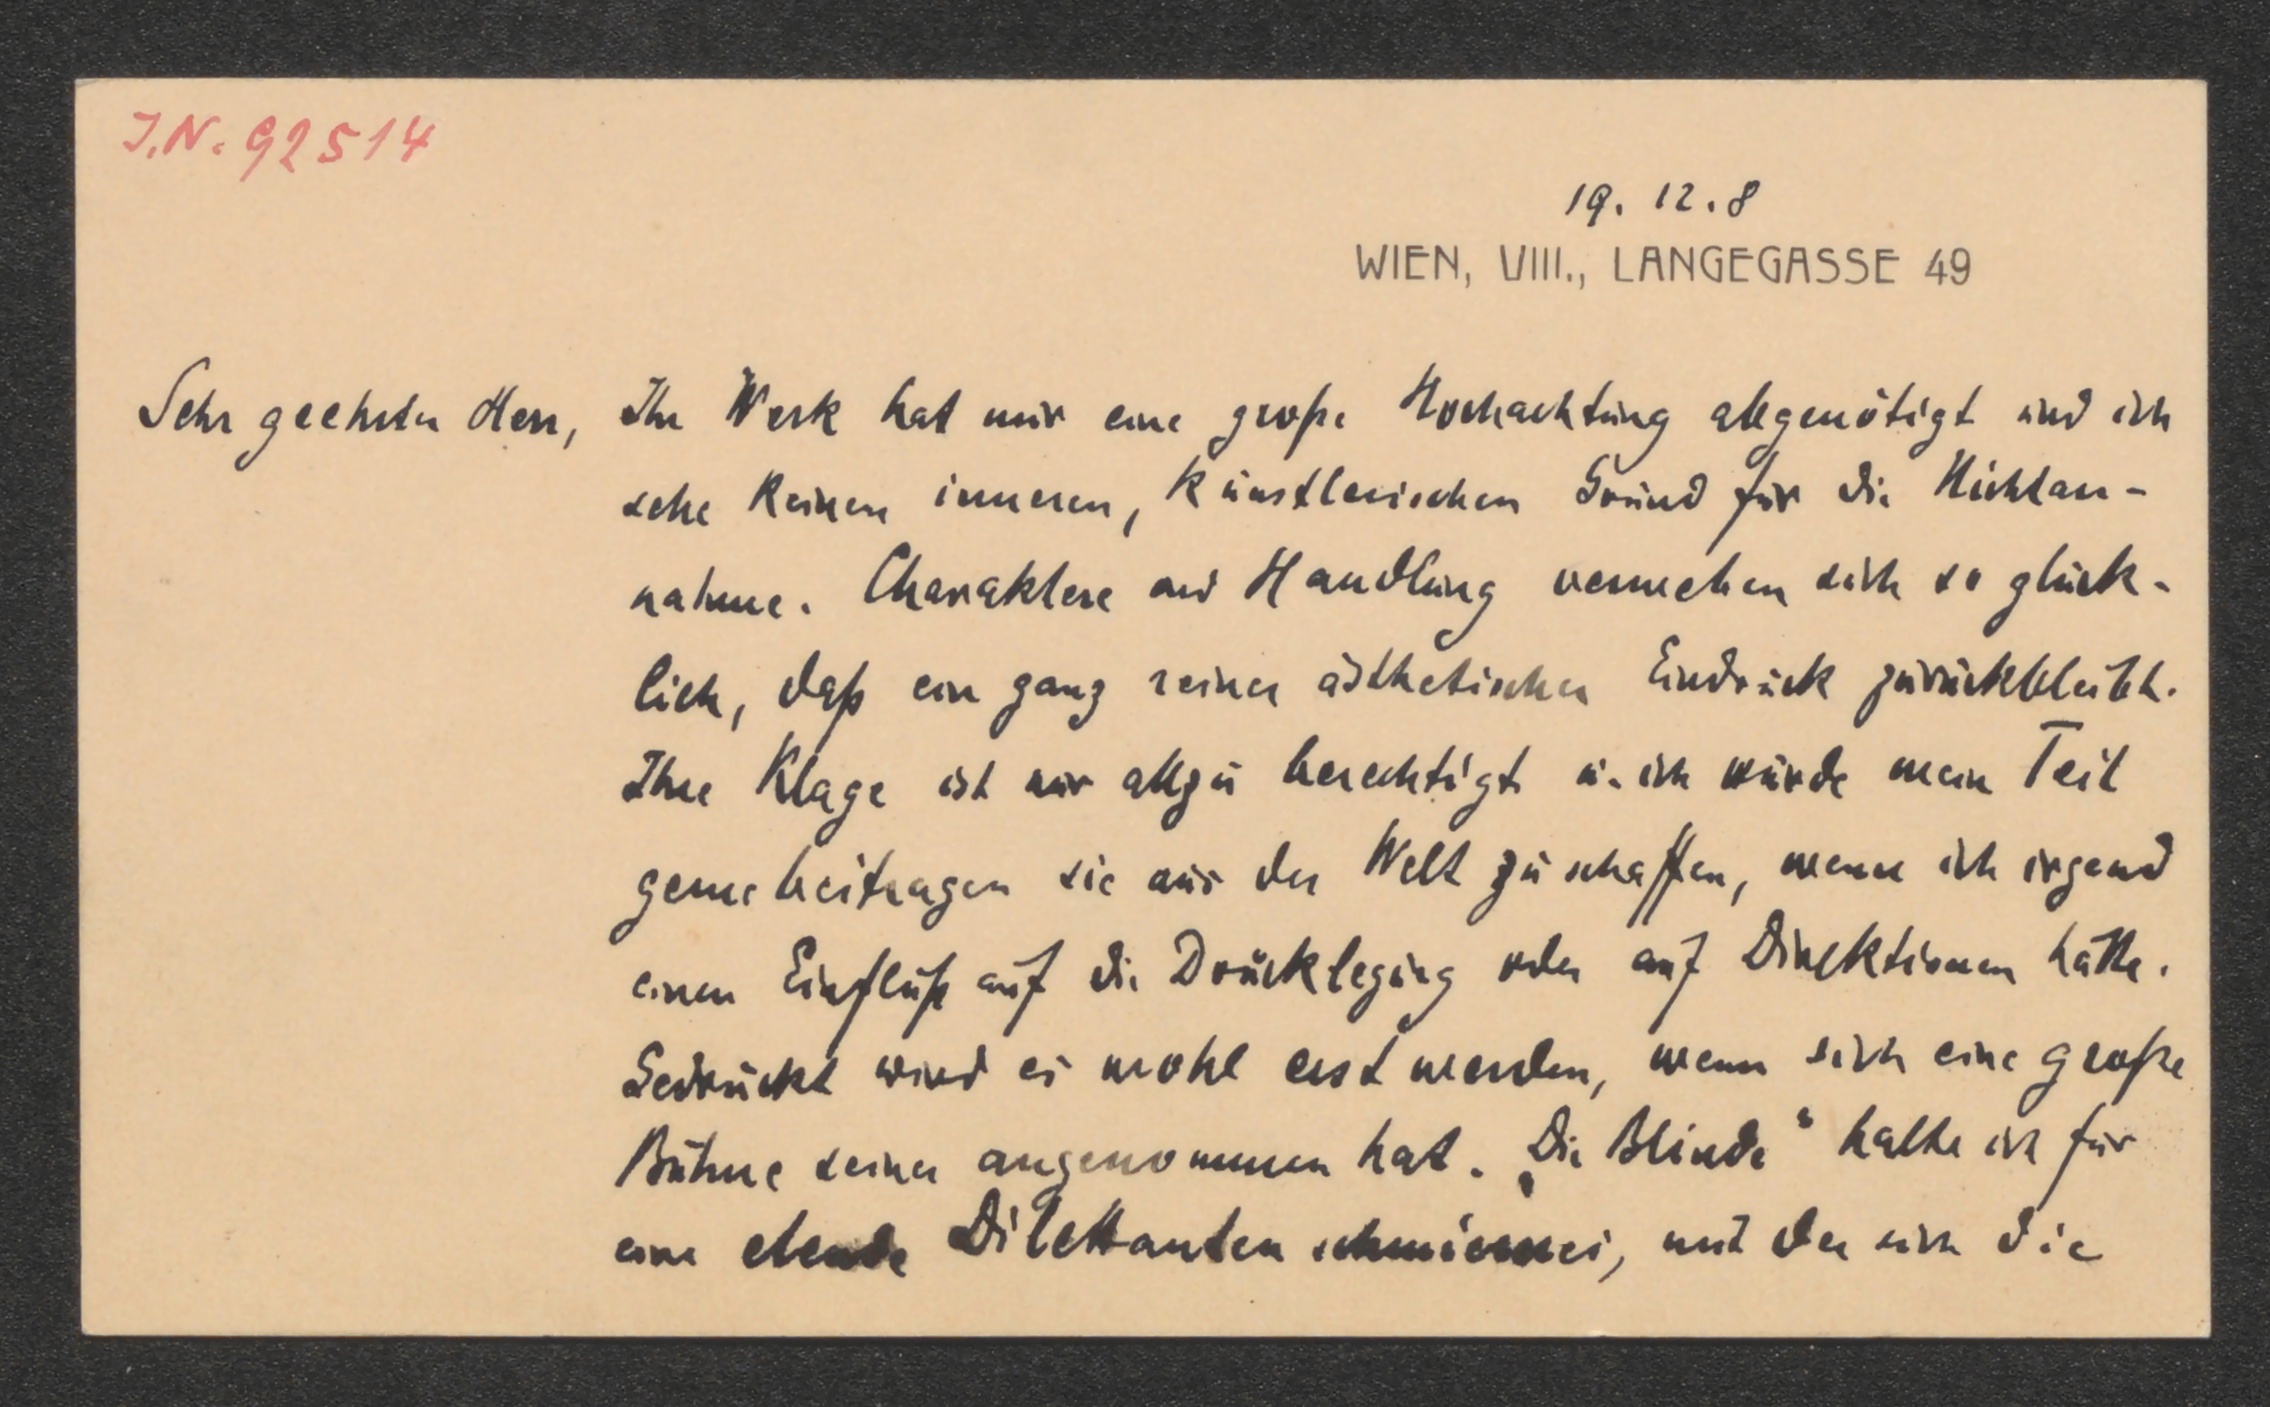 J.N. 92514
19. 12. 8
WIEN, VIII., LANGEGASSE 49
Sehr geehrter Herr, Ihr Werk hat mir eine große Hochachtung abgenötigt und ich
sehe keinen inneren, künstlerischen Grund für die Nichtan-
nahme. Charaktere und Handlung verweben sich so glück-
lich, daß ein ganz reiner ästhetischer Eindruck zurückbleibt.
Ihre Klage ist nur allzu berechtigt u. ich würde mein Teil
gerne beitragen sie aus der Welt zu schaffen, wenn ich irgend
einen Einfluß auf die Drucklegung oder auf Direktionen hätte.
Gedruckt wird es wohl erst werden, wenn sich eine große
Bühne seiner angenommen hat. „Die Blinde" halte ich für
eine elende Dilettantenschmiererei, mit der sich die